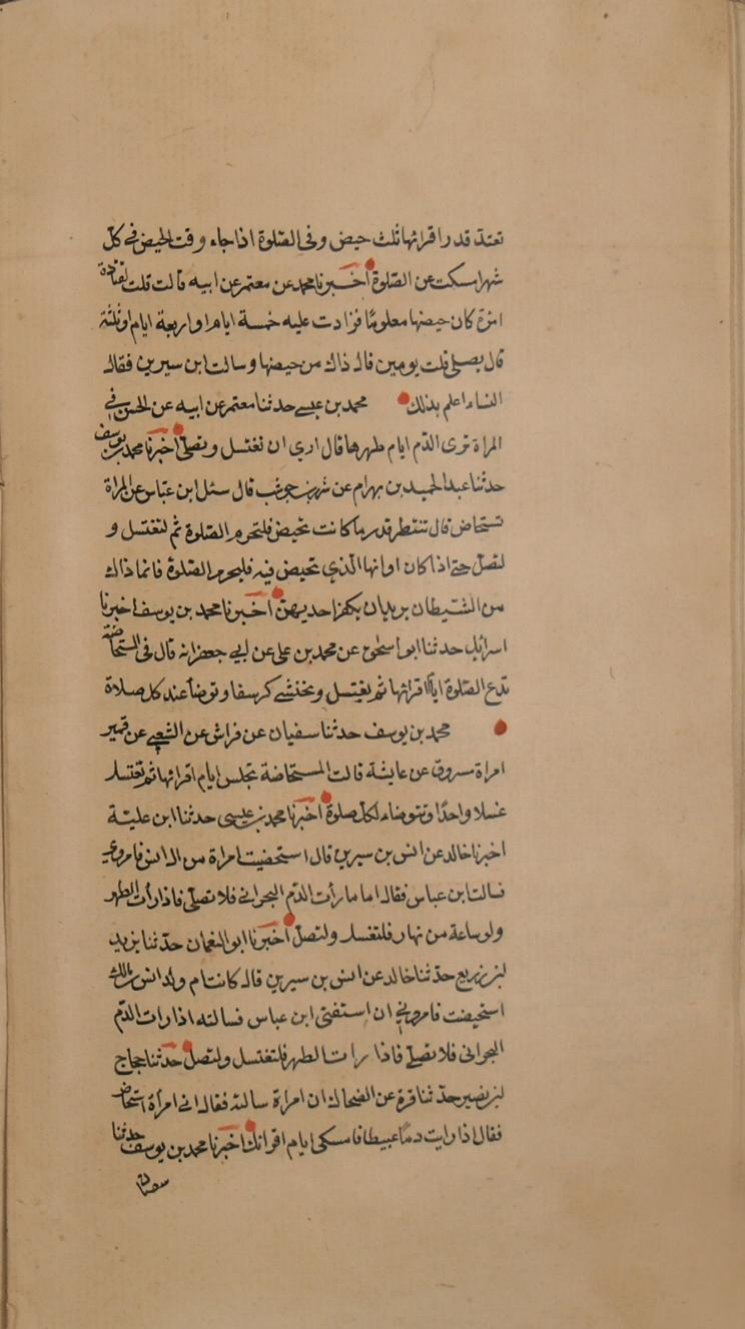 تعتد قدر اقرائها ثلث حيض وفى الصلوة اذا جاء وقت الحيض فى كل
شهر امسكت عن الصلوة اخبرنا محمد عن معتمر عن ابيه قالت قلت لقتادة
امرة كان حيضها معلوما فزادت عليه خمسة ايام او اربعة ايام او ثلثة
قال تصلى قلت يومين قال ذاك من حيضها وسالت ابن سيرين فقال
النساء اعلم بذلك محمد بن عيسى حدثنا معتمر عن ابيه عن الحسن فى
المراة ترى الدم ايام طهرها قال ارى ان تغتسل وتصلى اخبرنا محمد بن يوسف
حدثنا عبد الحميد بن بهرام عن شهر بن حوشب قال سئل ابن عباس عن المراة
تستحاض قال تنتظر قدر ما كانت تحيض فلتحرم الصلوة ثم لتغتسل و
لتصل حتى اذا كان اوانها الذى تحيض فيه فلتحرم الصلوة فانما ذاك
من الشيطان يريد ان يكفر احديهن اخبرنا محمد بن يوسف اخبرنا
اسرائيل حدثنا ابو اسحق عن محمد بن على عن ابى جعفر انه قال فى المستحاضة
تدع الصلوة ايام اقرائها ثم تغتسل وتحتشى كرسفا وتوضأ عند كل صلاة
محمد بن يوسف حدثنا سفيان عن فراش عن الشعبى عن قمير
امراة مسروق عن عايشة قالت المستحاضة تجلس ايام اقرائها ثم تغتسل
غسلا واحدا وتتوضاء لكل صلوة اخبرنا محمد بن عيسى حدثنا ابن علية
اخبرنا خالد عن انس بن سيرين قال استحيضت امراة من ال انس فامرونى
فسالت ابن عباس فقال اما ما رأت الدم البحرانى فلا تصلى فاذا رأت الطهر
ولو ساعة من نهار فلتغتسل ولتصل اخبرنا ابو النعمان حدثنا يزيد
بن زريع حدثنا خالد عن انس بن سيرين قال كانت ام ولد انس بن مالك
استحيضت فامرونى ان استفتى ابن عباس فسالته اذا رات الدم
البحرانى فلا تصلى فاذا رات الطهر فلتغتسل ولتصل حدثنا حجاج
بن نصير حدثنا قرة عن الضحاك ان امراة سالته فقال انى امرأة استحاض
فقال اذا رايت دما عبيطا فامسكى ايام اقرائك اخبرنا محمد بن يوسف حدثنا
سفيان